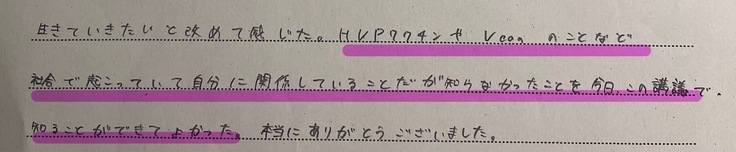 生きていきたいと改めて感じた。HVPワクチンや Vcan のことなど
社会で起こっていて自分に関係していることだが知らなかったことを今日、この講議で、
知ることができてよかった。本当にありがとうございました。